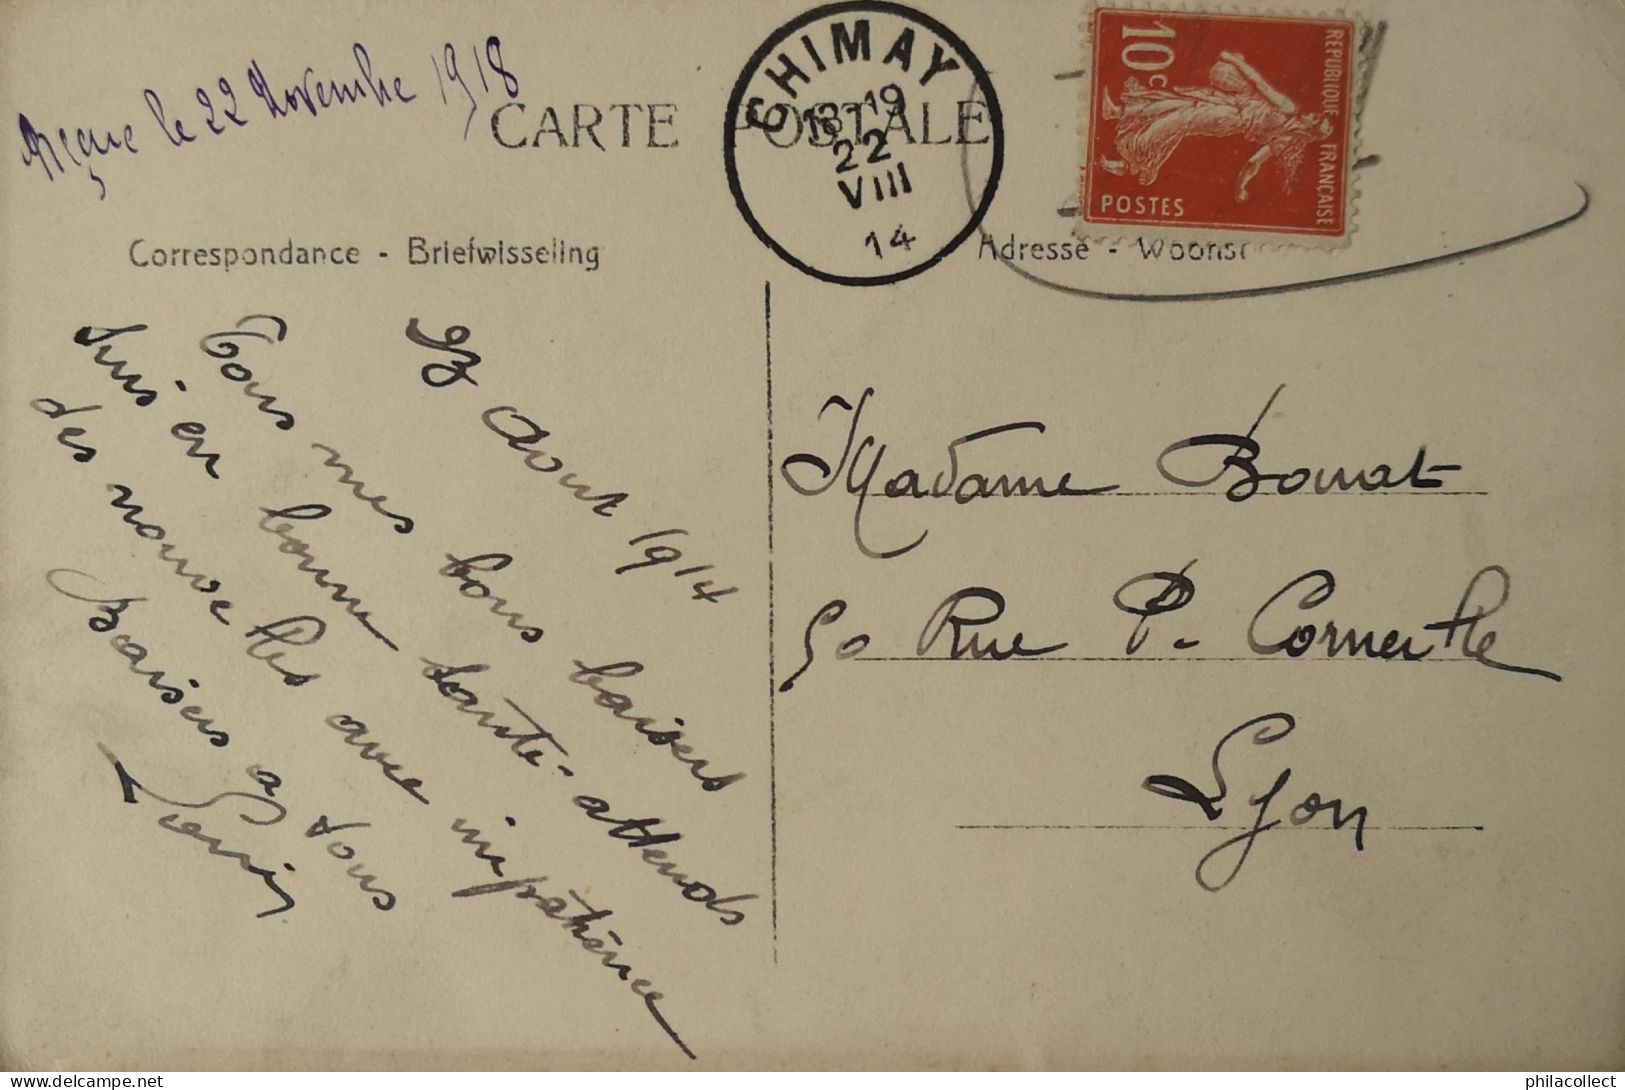 Reçue le 22 Novembre 1918
CARTE POSTALE
CHIMAY
18-19
22
VIII
14
10c
REPUBLIQUE FRANÇAISE
POSTES
Correspondance - Briefwisseling
Adresse - Woonst
Août 1914
Tous mes bons baisers
suis en bonne santé - attends
des nouvelles avec impatience
Baisers à tous
Louis
Madame Bouat
50 Rue P. Corneille
Lyon
philacollect
delcampe.net